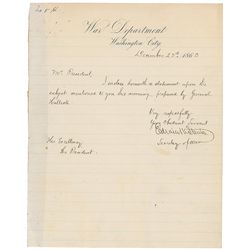 War Department
Washington City
December 23rd, 1863
Mr. President,
I enclose herewith a statement upon the
subject mentioned to you this morning, prepared by General
Halleck.
Very respectfully
Your obedient Servant
Edwin M Stanton
Secretary of War
His Excellency
The President.